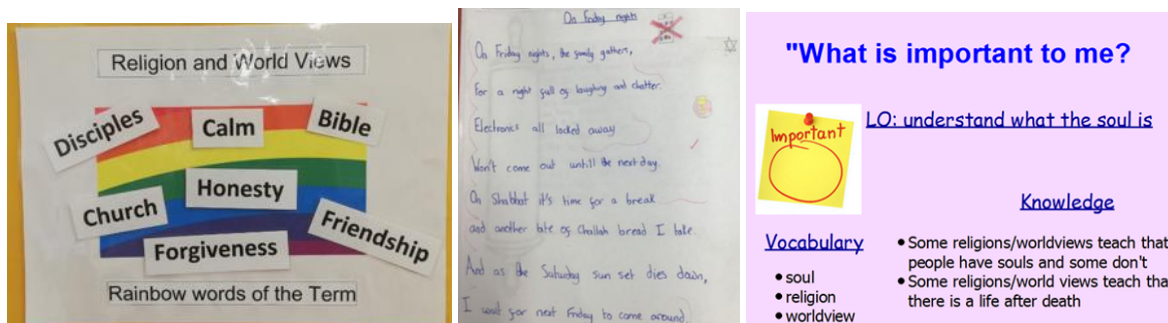 Religion and World Views
Disciples
Calm
Bible
Honesty
Church
Friendship
Forgiveness
Rainbow words of the Term
On Friday nights
On Friday nights, the family gathers,
For a night full of laughing and chatter.
Electronics all locked away
Won't come out untill the next day.
On Shabbat it's time for a break
and another bite of Challah bread I take.
And as the Saturday sun set dies down,
I wait for next Friday to come around.
"What is important to me?
Important
LO: understand what the soul is
Knowledge
Vocabulary
• soul
• religion
• worldview
• Some religions/worldviews teach that
people have souls and some don't
• Some religions/world views teach tha
there is a life after death